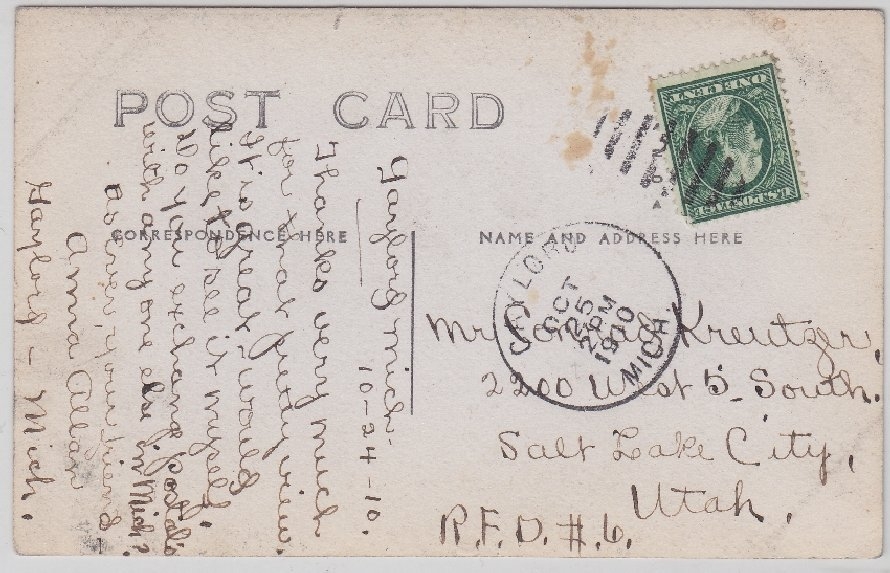 POST CARD
CORRESPONDENCE HERE
NAME AND ADDRESS HERE
ONE CENT
U.S. POSTAGE
GAYLORD
OCT
25
2 PM
1910
MICH.
Gaylord Mich-
10-24-10.
Thanks very much
for that pretty view.
It is great, would
like to see it myself.
Do you exchange postals
with any one else in Mich?
as ever your friend-
Anna Alban
Gaylord - Mich.
Mr Conrad Kreutzer,
2200 West 5- South.
Salt Lake City,
Utah,
R.F.D. #.6.